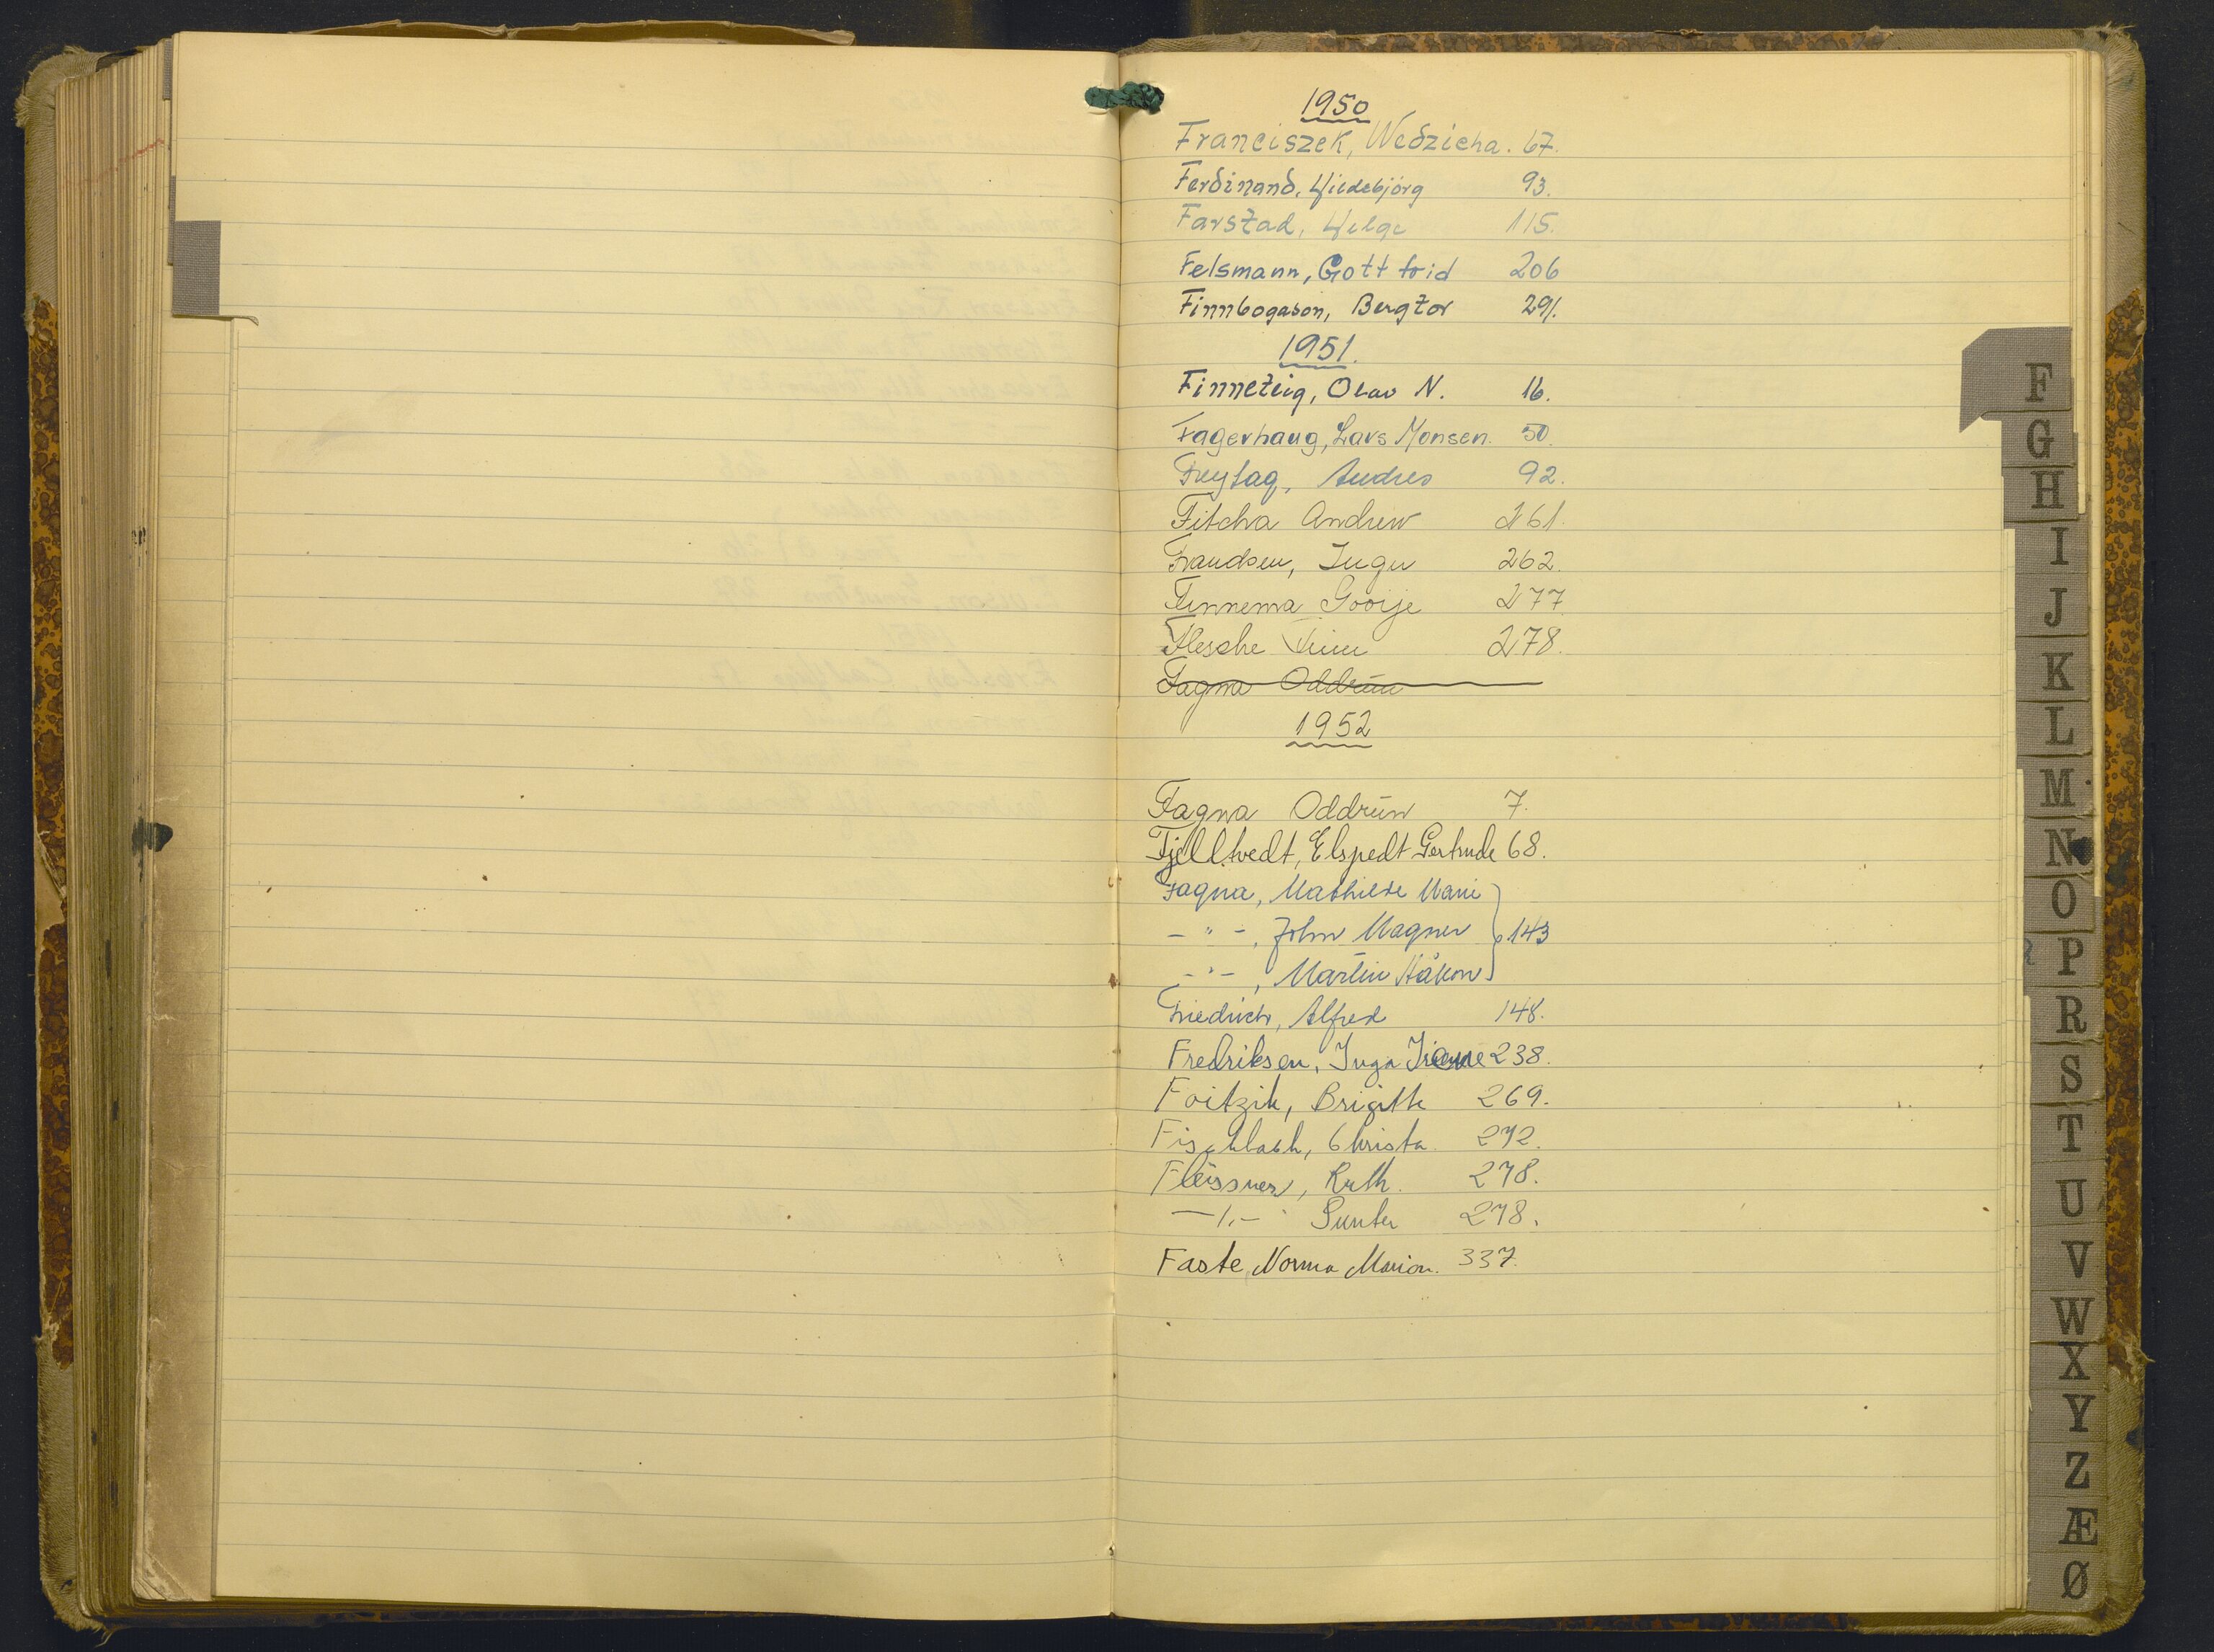 1950
Franciszek, Wedzicha. 67.
Ferdinand, Hildebjörg 93.
Farstad, Helge 115.
Felsmann, Gottfrid 206
Finnbogason, Bergtor 291.
1951.
Finneteig, Olav N. 16.
Fagerhaug, Lars Monsen. 50.
Freytag, Andres 92.
Fitcha Andrew 261.
Frandsen, Inger 262.
Fennema Gooije 277.
Flesche 278.
Fagna Oddrun
1952
Fagna Oddrun 7.
Fjelltvedt, Elspedt Gertrude 68.
Fagna, Mathilde Marie
- " -, John Magner 143
- " -, Martin Håkon
Friedrich, Alfred 148.
Fredriksen, Inga Irene 238.
Foitzik, Brigitte 269.
Fischbach, Christa. 272.
Fleissner, Ruth. 278.
-"- Gunter 278.
Faste, Norma Marion. 337.
F
G
H
I
J
K
L
M
N
O
P
R
S
T
U
V
W
X
Y
Z
Æ
Ø